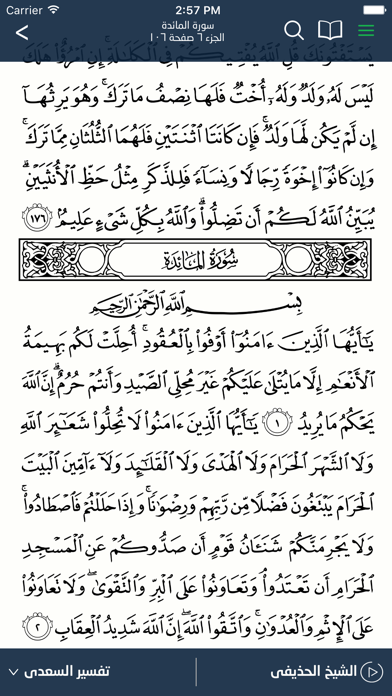 Carrier 2:57 PM
سورة المائدة
الجزء ٦ صفحة ١٠٦
يَسْتَفْتُونَكَ قُلِ ٱللَّهُ يُفْتِيكُمْ فِى ٱلْكَلَٰلَةِ ۚ إِنِ ٱمْرُؤٌا۟ هَلَكَ
لَيْسَ لَهُۥ وَلَدٌ وَلَهُۥٓ أُخْتٌ فَلَهَا نِصْفُ مَا تَرَكَ ۚ وَهُوَ يَرِثُهَآ
إِن لَّمْ يَكُن لَّهَا وَلَدٌ ۚ فَإِن كَانَتَا ٱثْنَتَيْنِ فَلَهُمَا ٱلثُّلُثَانِ مِمَّا تَرَكَ ۚ
وَإِن كَانُوٓا۟ إِخْوَةً رِّجَالًا وَنِسَآءً فَلِلذَّكَرِ مِثْلُ حَظِّ ٱلْأُنثَيَيْنِ ۗ
يُبَيِّنُ ٱللَّهُ لَكُمْ أَن تَضِلُّوا۟ ۗ وَٱللَّهُ بِكُلِّ شَىْءٍ عَلِيمٌۢ ١٧٦
سُورَةُ المَائِدَةِ
بِسْمِ ٱللَّهِ ٱلرَّحْمَٰنِ ٱلرَّحِيمِ
يَٰٓأَيُّهَا ٱلَّذِينَ ءَامَنُوٓا۟ أَوْفُوا۟ بِٱلْعُقُودِ ۚ أُحِلَّتْ لَكُم بَهِيمَةُ
ٱلْأَنْعَٰمِ إِلَّا مَا يُتْلَىٰ عَلَيْكُمْ غَيْرَ مُحِلِّى ٱلصَّيْدِ وَأَنتُمْ حُرُمٌ ۗ إِنَّ ٱللَّهَ
يَحْكُمُ مَا يُرِيدُ ١ يَٰٓأَيُّهَا ٱلَّذِينَ ءَامَنُوا۟ لَا تُحِلُّوا۟ شَعَٰٓئِرَ ٱللَّهِ
وَلَا ٱلشَّهْرَ ٱلْحَرَامَ وَلَا ٱلْهَدْىَ وَلَا ٱلْقَلَٰٓئِدَ وَلَآ ءَآمِّينَ ٱلْبَيْتَ
ٱلْحَرَامَ يَبْتَغُونَ فَضْلًا مِّن رَّبِّهِمْ وَرِضْوَٰنًا ۚ وَإِذَا حَلَلْتُمْ فَٱصْطَادُوا۟ ۚ
وَلَا يَجْرِمَنَّكُمْ شَنَـَٔانُ قَوْمٍ أَن صَدُّوكُمْ عَنِ ٱلْمَسْجِدِ
ٱلْحَرَامِ أَن تَعْتَدُوا۟ ۘ وَتَعَاوَنُوا۟ عَلَى ٱلْبِرِّ وَٱلتَّقْوَىٰ ۖ وَلَا تَعَاوَنُوا۟
عَلَى ٱلْإِثْمِ وَٱلْعُدْوَٰنِ ۚ وَٱتَّقُوا۟ ٱللَّهَ ۖ إِنَّ ٱللَّهَ شَدِيدُ ٱلْعِقَابِ ٢
الشيخ الحذيفى
تفسير السعدى